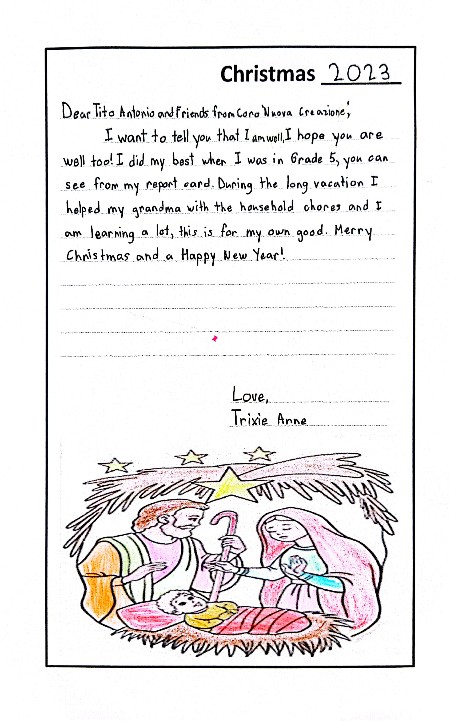 Christmas 2023
Dear Tito Antonio and Friends from Coro "Nuova Creazione",
I want to tell you that I am well, I hope you are
well too! I did my best when I was in Grade 5, you can
see from my report card. During the long vacation I
helped my grandma with the household chores and I
am learning a lot, this is for my own good. Merry
Christmas and a Happy New Year!
Love,
Trixie Anne